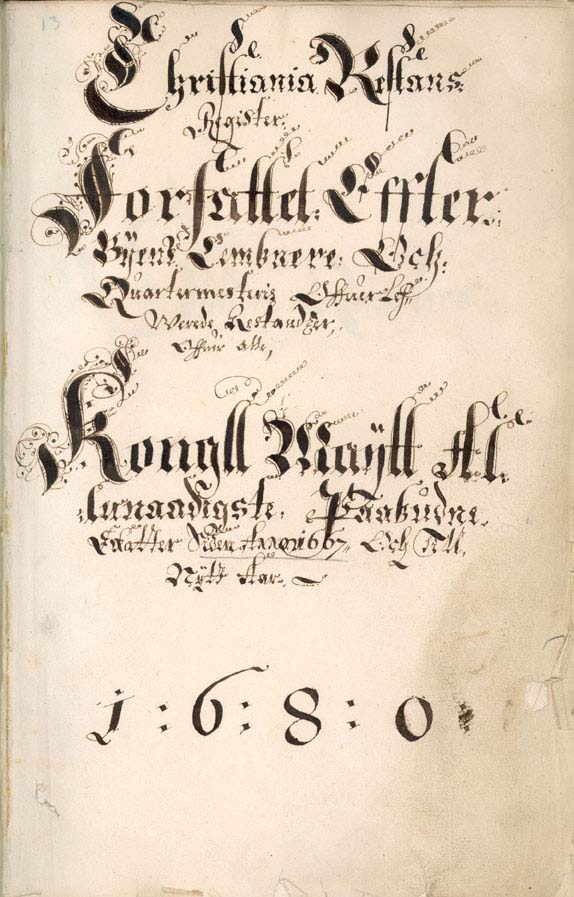 13
Christiania Restans
Register.
Forfattet: Effter
Byens Kembnere: Och:
Quartermesters Offuerlef
Werede Restandzer,
Offuir alle,
Kongll Maÿtt Al
lunaadigste: Paabudne
Skatter Siden Anno 1667 Och Till
Nÿtt Aar.
1:6:8:0